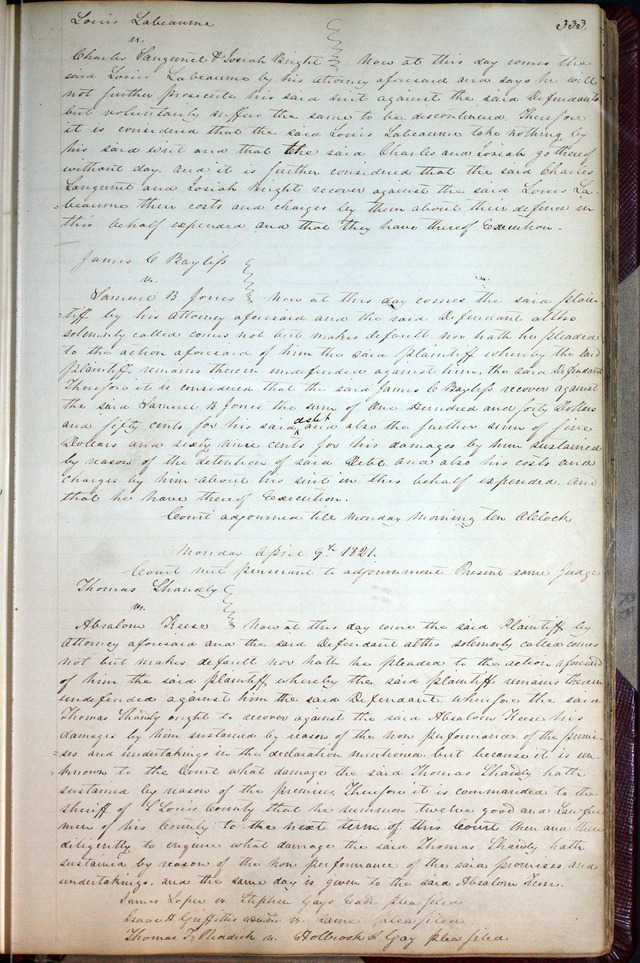 333.
Louis Labeaume
vs.
Charles Sanguinet & Josiah Bright Now at this day comes the
said Louis Labeaume by his attorney aforesaid and says he will
not further prosecute his said suit against the said Defendants
but voluntarily suffers the same to be discontinued. Therefore
it is considered that the said Louis Labeaume take nothing by
his said writ and that the said Charles and Josiah go thereof
without day. and it is further considered that the said Charles
Sanguinet and Josiah Bright recover against the said Louis La-
-beaume their costs and charges by them about their defence in
this behalf expended and that they have thereof Execution.
James C Bayliss
vs.
Samuel B Jones Now at this day comes the said plain-
-tiff by his attorney aforesaid and the said Defendant altho
solemnly called comes not but makes default nor hath he pleaded
to the action aforesaid of him the said plaintiff whereby the said
plaintiff remains therein undefended against him, the said Defendant
Therefore it is considered that the said James C Bayliss recover against
the said Samuel B Jones the sum of One Hundred and forty Dollars
and fifty cents for his said debt and also the further sum of five
Dollars and sixty nine cents for his damages by him sustained
by reason of the detention of said Debt and also his costs and
charges by him about his suit in this behalf expended and
that he have thereof Execution.
Court adjourned till Monday Morning ten OClock
Monday April 9th 1821.
Court met pursuant to adjournment Present same Judge
Thomas Shandy
vs.
Absalom Keese Now at this day come the said Plaintiff by
Attorney aforesaid and the said Defendant altho solemnly called comes
not but makes default nor hath he pleaded to the action aforesaid
of him the said plaintiff whereby the said plaintiff remains therein
undefended against him the said Defendant wherefore the said
Thomas Shandy ought to recover against the said Absalom Keese his
damages by him sustained by reason of the non performance of the promi-
-ses and undertakings in the declaration mentioned but because it is un-
-known to the Court what damage the said Thomas Shandy hath
sustained by reason of the premises. Therefore it is commanded to the
sheriff of St Louis County that he summon twelve good and Lawful
men of his County to the next term of this Court then and there
diligently to enquire what damage the said Thomas Shandy hath
sustained by reason of the non performance of the said promises and
undertakings, and the same day is given to the said Absalom Keese.
James Loper vs. Stephen Gays plea filed
Isaac H Griffith vs. Same plea filed
Thomas F Riddick vs. Holbrook & Gay plea filed